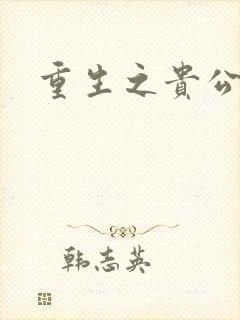 重生之貴公
韩志英